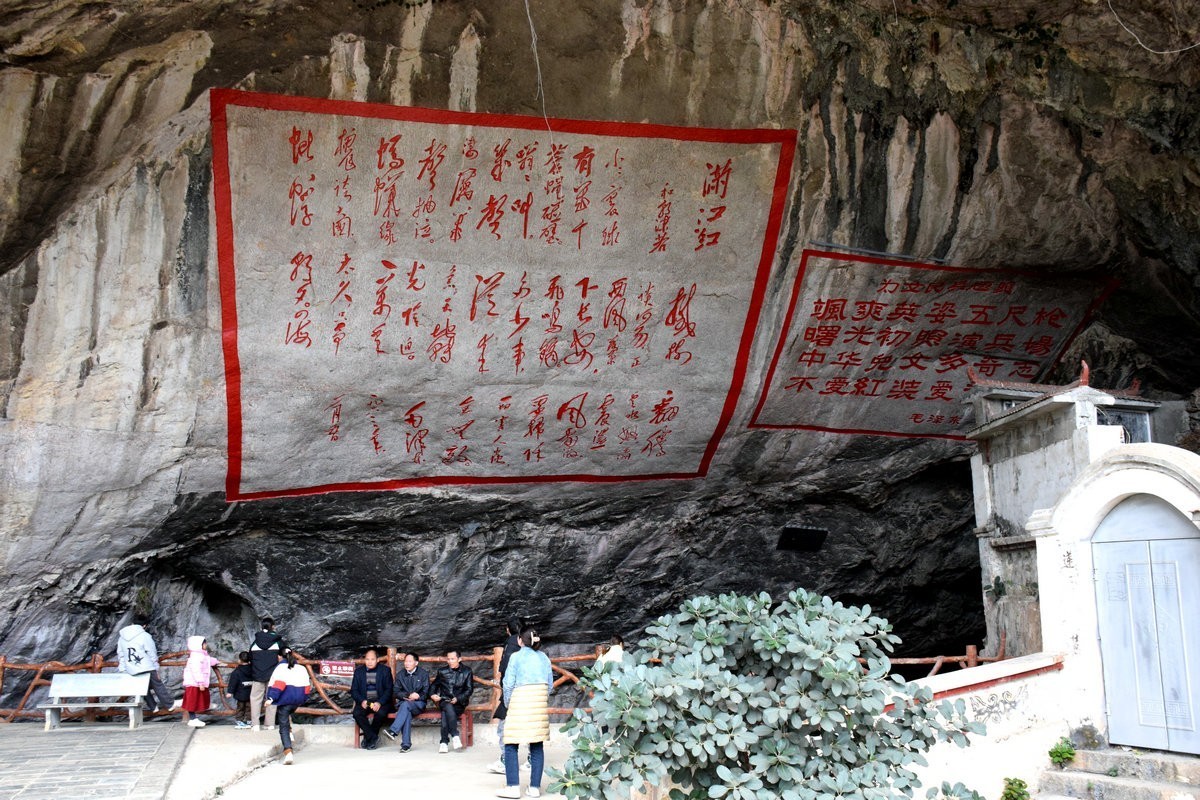 满江红
和郭沫若
小小寰球
有几个
苍蝇碰壁
嗡嗡叫
几声
凄厉几
声抽泣
蚂蚁缘
槐夸大国
蚍蜉
撼树
谈何易 正
西风落叶
下长安
飞鸣镝
多少事
从来急
天地转
光阴迫
一万年
太久只争
朝夕 四海
翻腾
云水怒
五洲震荡
风雷激
要扫除一
切害人虫
全无敌
毛泽东
一九六三年
为女民兵题照
颯爽英姿五尺枪
曙光初照演兵場
中华兒女多奇志
不爱紅装爱
毛泽东